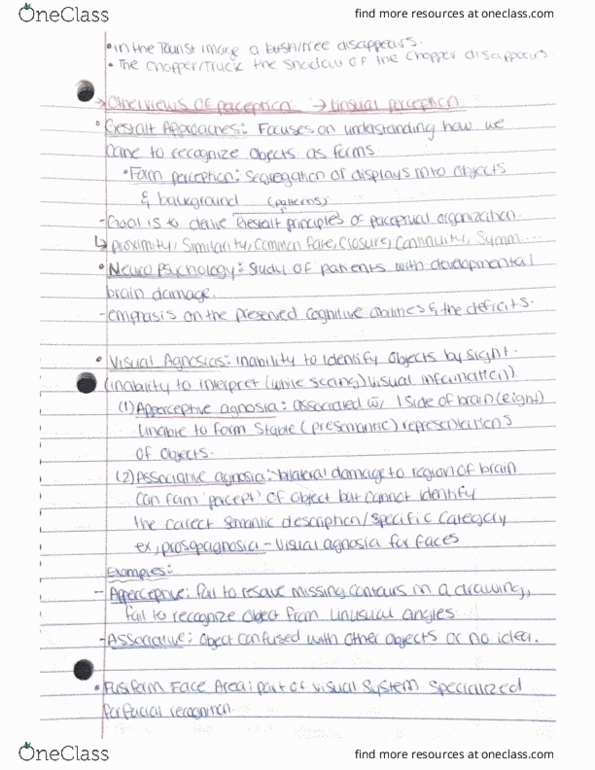 OneClass
find more resources at oneclass.com
• in the Tourist image a bush/tree disappears.
• The Chopper/Truck the Shadow of the Chopper disappears
→ Other views of perception → Unsual perception
• Gestalt Approaches: Focuses on undestanding how we
came to recognize objects as forms
• Form perception: Segregation of displays into objects
& background (patterns)
- Goal is to derive Gestalt principles of perceptual organization.
↳ proximity, Similarity, Common Fate, Closure, Continuity, Symm...
• Neuro Psychology: Study of patients with developmental
brain damage.
- emphasis on the preserved cognitive abilities & the deficits.
• Visual Agnosias: inability to identify objects by sight.
(inability to interpret (while seeing) visual information)).
(1) Apperceptive agnosia: associated w/ 1 side of brain (right)
Unable to form Stable (presemantic) representations
of objects.
(2) Associative agnosia: bilateral damage to region of brain
can form 'percept' of object but cannot identify
the correct semantic description/specific category
ex, prosopagnosia - visual agnosia for faces
Examples:
- Apperceptive: fail to resolve missing contours in a drawing,
fail to recognize object from unusual angles.
- Associative: object confused with other objects or no idea.
• Fusiform Face Area: part of visual system specialized
for facial recognition.
OneClass
find more resources at oneclass.com